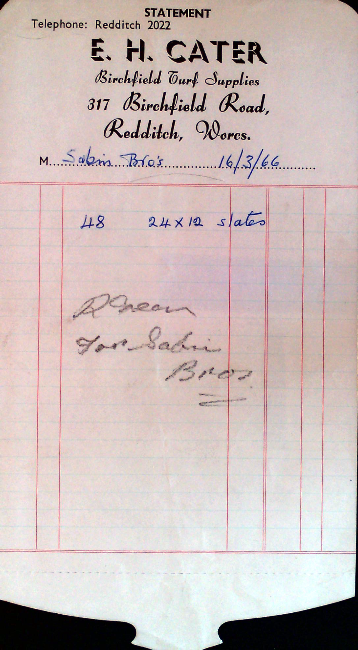 STATEMENT
Telephone: Redditch 2022
E. H. CATER
Birchfield Turf Supplies
317 Birchfield Road,
Redditch, Worcs.
M... Sabin Bro's 16/3/66
48 24 x 12 slates
For Sabin
Bros.